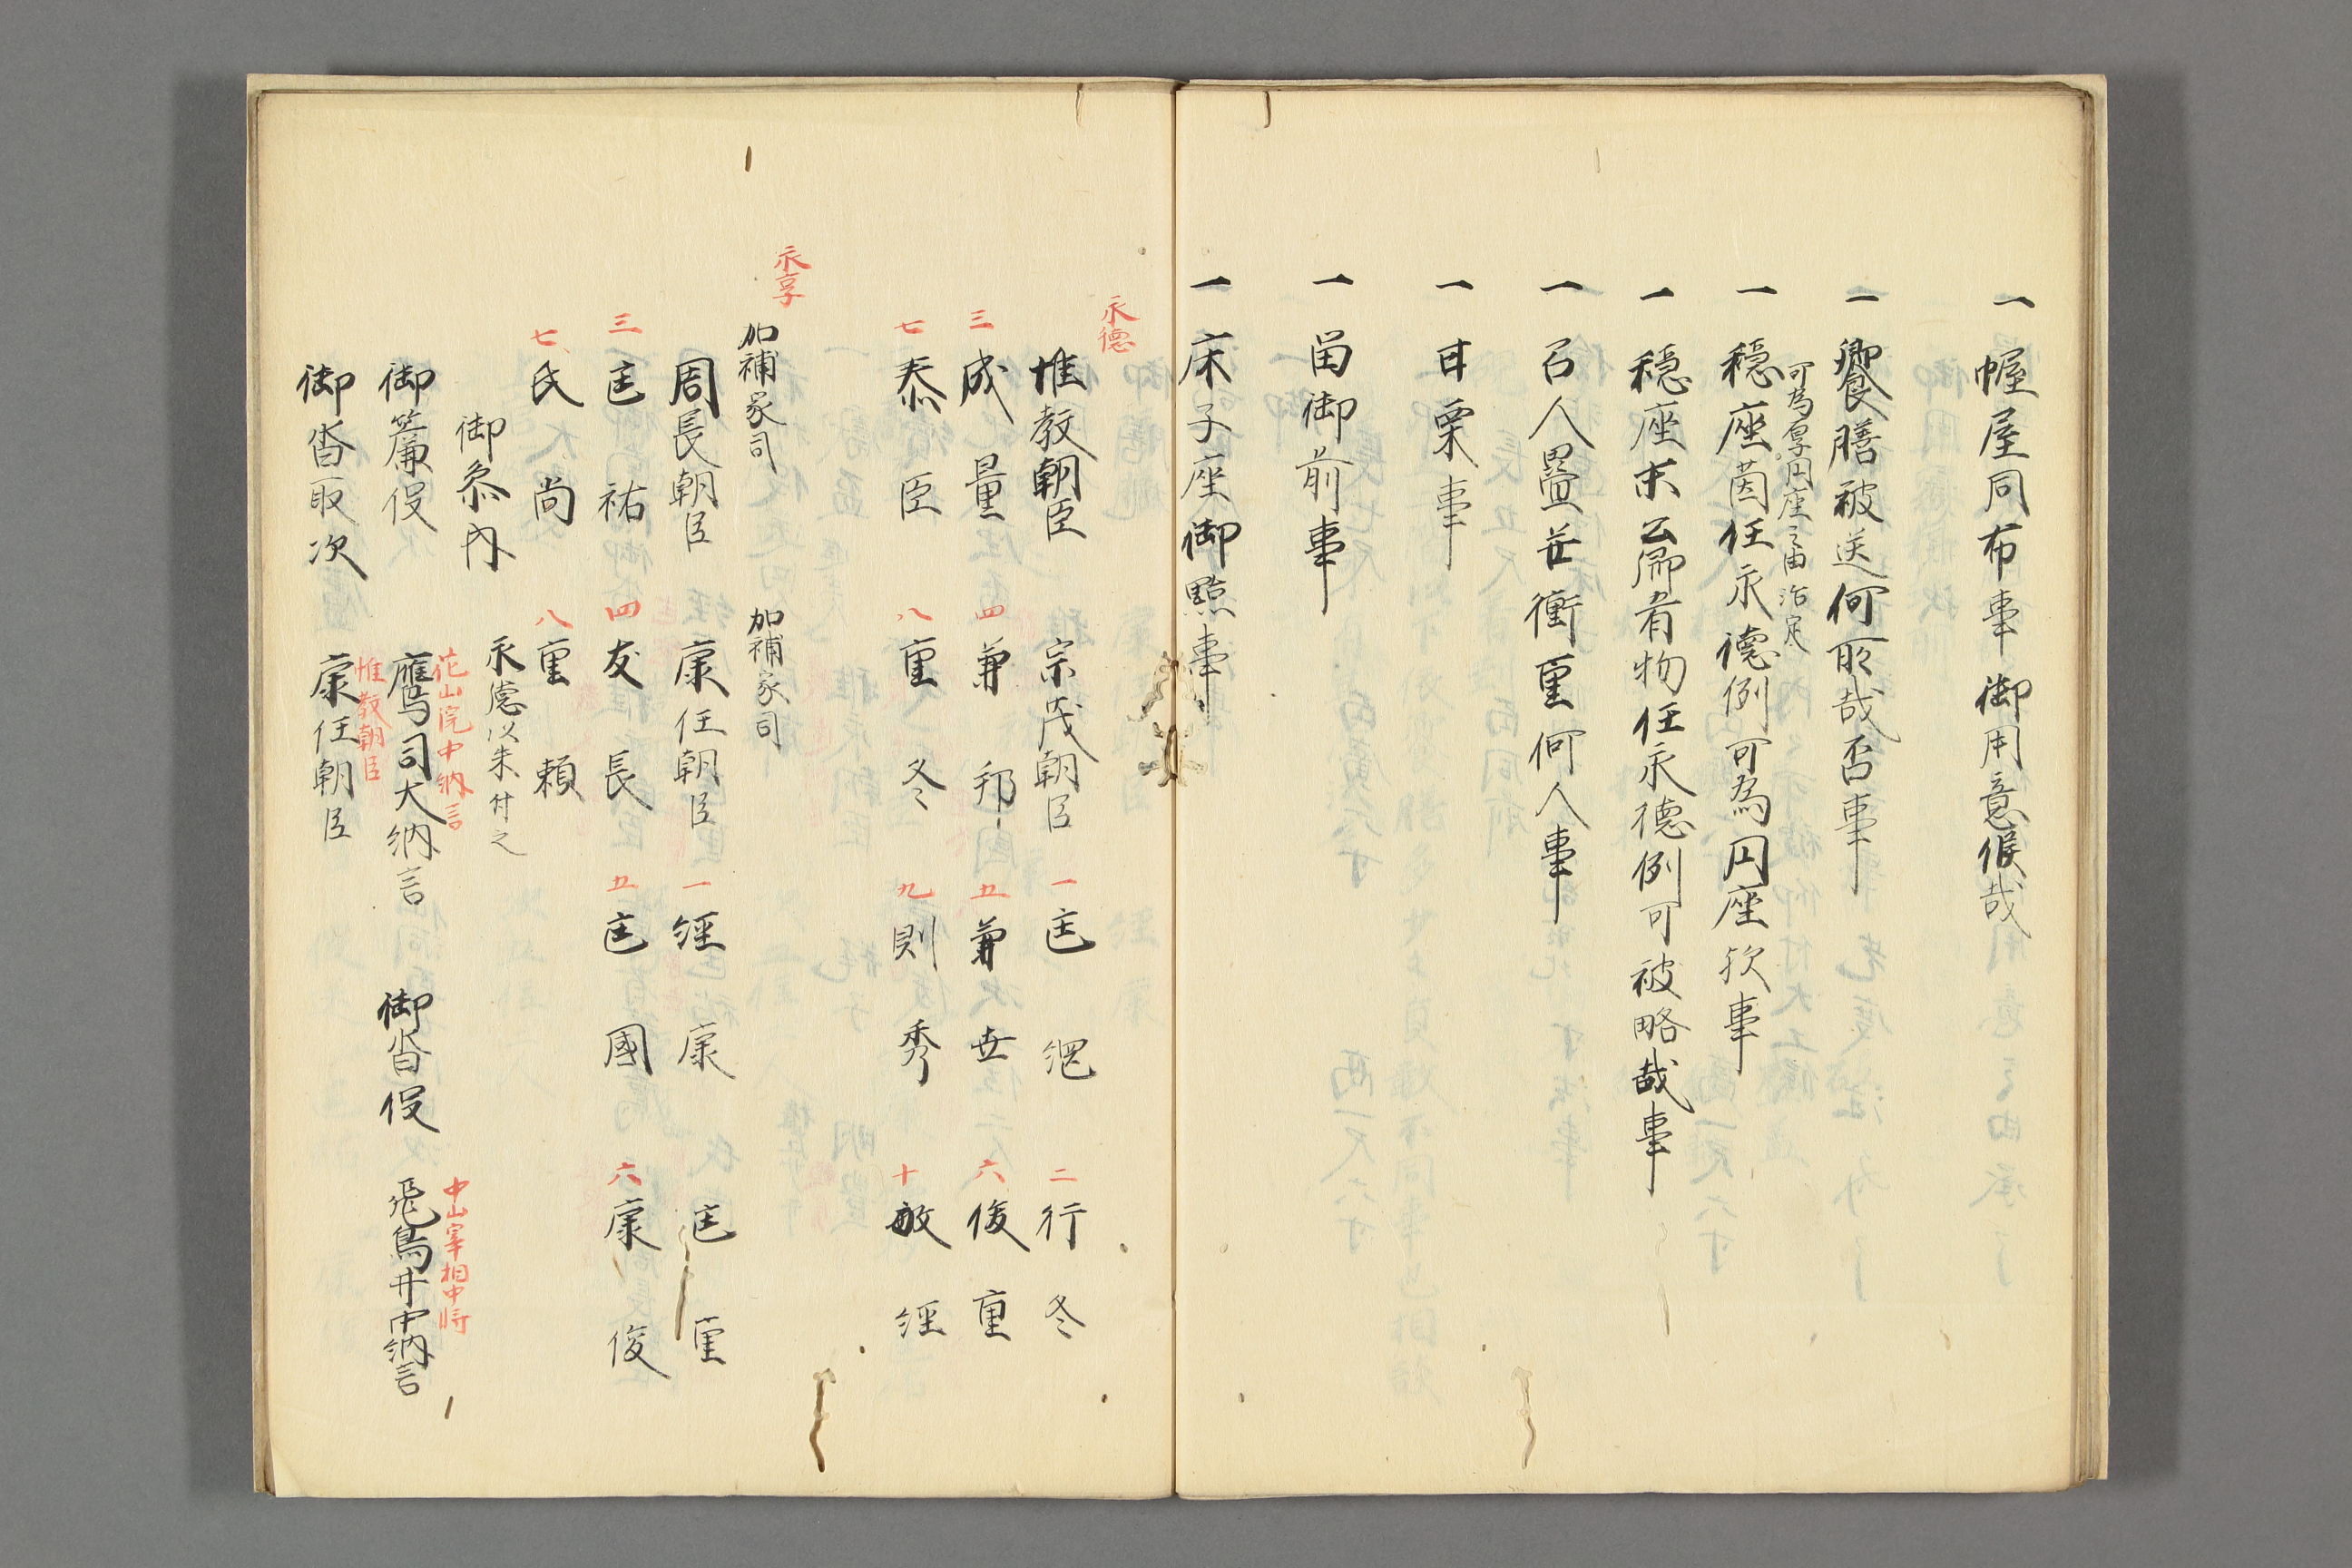 一 幄屋同布事 御用意候哉
一 饗膳被送何所哉否事
可為厚円座之由治定
一 穏座茵任永德例可為円座欤事
一 穏座末公卿肴物任永德例可被略哉事
一 召人疊并衝重何人事
一 甘栗事
一 留御前事
一 床子座御點事
永德
惟教朝臣 宗茂朝臣 一 匡綱 二 行冬
三 成量 四 兼邦 五 兼世 六 俊重
七 泰臣 八 重冬 九 則秀 十 敏経
永享
加補家司 加補家司
周長朝臣 康任朝臣 一 経康 二 匡重
三 匡祐 四 友長 五 匡國 六 康俊
七 氏尚 八 重頼
御参内 永德以来付之
花山院中納言 中山宰相中将
御簾役 鷹司大納言 御沓役 飛鳥井中納言
惟教朝臣
御沓取次 康任朝臣